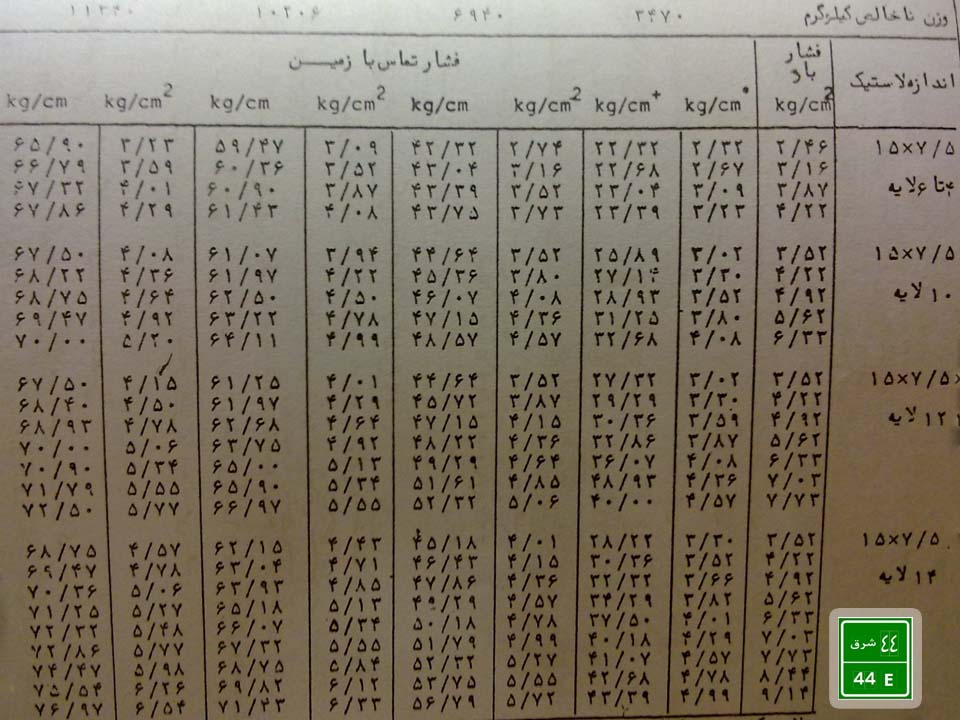 وزن ناخالص کیلوگرم ۳۴۷۰ ۶۹۴۰ ۱۰۲۰۶ ۱۱۳۴۰
فشار باد فشار تماس با زمیـــن
اندازه لاستیک kg/cm² kg/cm• kg/cm+ kg/cm² kg/cm kg/cm² kg/cm kg/cm² kg/cm
۱۵×۷/۵ ۲/۴۶ ۲/۳۲ ۲۲/۳۲ ۲/۷۴ ۴۲/۳۲ ۳/۰۹ ۵۹/۴۷ ۳/۲۳ ۶۵/۹۰
۳/۱۶ ۲/۶۷ ۲۲/۶۸ ۳/۱۶ ۴۳/۰۴ ۳/۵۲ ۶۰/۳۶ ۳/۵۹ ۶۶/۷۹
۴ تا ۶ لایه ۳/۸۷ ۳/۰۹ ۲۳/۰۴ ۳/۵۲ ۴۳/۳۹ ۳/۸۷ ۶۰/۹۰ ۴/۰۱ ۶۷/۳۲
۴/۲۲ ۳/۲۳ ۲۳/۳۹ ۳/۷۳ ۴۳/۷۵ ۴/۰۸ ۶۱/۴۳ ۴/۲۹ ۶۷/۸۶
۱۵×۷/۵ ۳/۵۲ ۳/۰۲ ۲۵/۸۹ ۳/۵۲ ۴۴/۶۴ ۳/۹۴ ۶۱/۰۷ ۴/۰۸ ۶۷/۵۰
۴/۲۲ ۳/۳۰ ۲۷/۱۴ ۳/۸۰ ۴۵/۳۶ ۴/۲۲ ۶۱/۹۷ ۴/۳۶ ۶۸/۲۲
۱۰ لایه ۴/۹۲ ۳/۵۲ ۲۸/۹۳ ۴/۰۸ ۴۶/۰۷ ۴/۵۰ ۶۲/۵۰ ۴/۶۴ ۶۸/۷۵
۵/۶۲ ۳/۸۰ ۳۱/۲۵ ۴/۳۶ ۴۷/۱۵ ۴/۷۸ ۶۳/۲۲ ۴/۹۲ ۶۹/۴۷
۶/۳۳ ۴/۰۸ ۳۲/۶۸ ۴/۵۷ ۴۸/۵۷ ۴/۹۹ ۶۴/۱۱ ۵/۲۰ ۷۰/۰۰
۱۵×۷/۵× ۳/۵۲ ۳/۰۲ ۲۷/۳۲ ۳/۵۲ ۴۴/۶۴ ۴/۰۱ ۶۱/۲۵ ۴/۱۵ ۶۷/۵۰
۴/۲۲ ۳/۳۰ ۲۹/۲۹ ۳/۸۷ ۴۵/۷۲ ۴/۲۹ ۶۱/۹۷ ۴/۵۰ ۶۸/۴۰
۱۲ لایه ۴/۹۲ ۳/۵۹ ۳۰/۳۶ ۴/۱۵ ۴۷/۱۵ ۴/۶۴ ۶۲/۶۸ ۴/۷۸ ۶۸/۹۳
۵/۶۲ ۳/۸۷ ۳۲/۸۶ ۴/۳۶ ۴۸/۲۲ ۴/۹۲ ۶۳/۷۵ ۵/۰۶ ۷۰/۰۰
۶/۳۳ ۴/۰۸ ۳۶/۰۷ ۴/۶۴ ۴۹/۲۹ ۵/۱۳ ۶۵/۰۰ ۵/۳۴ ۷۰/۹۰
۷/۰۳ ۴/۳۶ ۴۸/۹۳ ۴/۸۵ ۵۱/۶۱ ۵/۳۴ ۶۵/۹۰ ۵/۵۵ ۷۱/۷۹
۷/۷۳ ۴/۵۷ ۴۰/۰۰ ۵/۰۶ ۵۲/۳۲ ۵/۵۵ ۶۶/۹۷ ۵/۷۷ ۷۲/۵۰
۱۵×۷/۵ ۳/۵۲ ۳/۳۰ ۲۸/۲۲ ۴/۰۱ ۴۵/۱۸ ۴/۴۳ ۶۲/۱۵ ۴/۵۷ ۶۸/۷۵
۴/۲۲ ۳/۵۲ ۳۰/۳۶ ۴/۱۵ ۴۶/۴۳ ۴/۷۱ ۶۳/۰۴ ۴/۷۸ ۶۹/۴۷
۱۴ لایه ۴/۹۲ ۳/۶۶ ۳۲/۳۲ ۴/۳۶ ۴۷/۸۶ ۴/۸۵ ۶۳/۹۳ ۵/۰۶ ۷۰/۳۶
۵/۶۲ ۳/۸۲ ۳۴/۲۹ ۴/۵۷ ۴۹/۲۹ ۵/۱۳ ۶۵/۱۸ ۵/۲۷ ۷۱/۲۵
۶/۳۳ ۴/۰۱ ۳۷/۵۰ ۴/۷۸ ۵۰/۱۸ ۵/۳۴ ۶۶/۰۷ ۵/۴۸ ۷۲/۳۲
۷/۰۳ ۴/۲۹ ۴۰/۱۸ ۴/۹۹ ۵۱/۷۹ ۵/۵۵ ۶۷/۳۲ ۵/۷۷ ۷۲/۸۶
۷/۷۳ ۴/۵۷ ۴۱/۰۷ ۵/۲۷ ۵۲/۳۲ ۵/۸۴ ۶۸/۷۵ ۵/۹۸ ۷۴/۴۷
۸/۴۴ ۴/۷۸ ۴۲/۶۸ ۵/۵۵ ۵۳/۷۵ ۶/۱۲ ۶۹/۸۲ ۶/۲۶ ۷۵/۵۴
۹/۱۴ ۴/۹۹ ۴۳/۳۹ ۵/۷۲ ۵۶/۷۹ ۶/۳۳ ۷۱/۴۳ ۶/۵۴ ۷۶/۹۷
۴۴ شرق
44 E